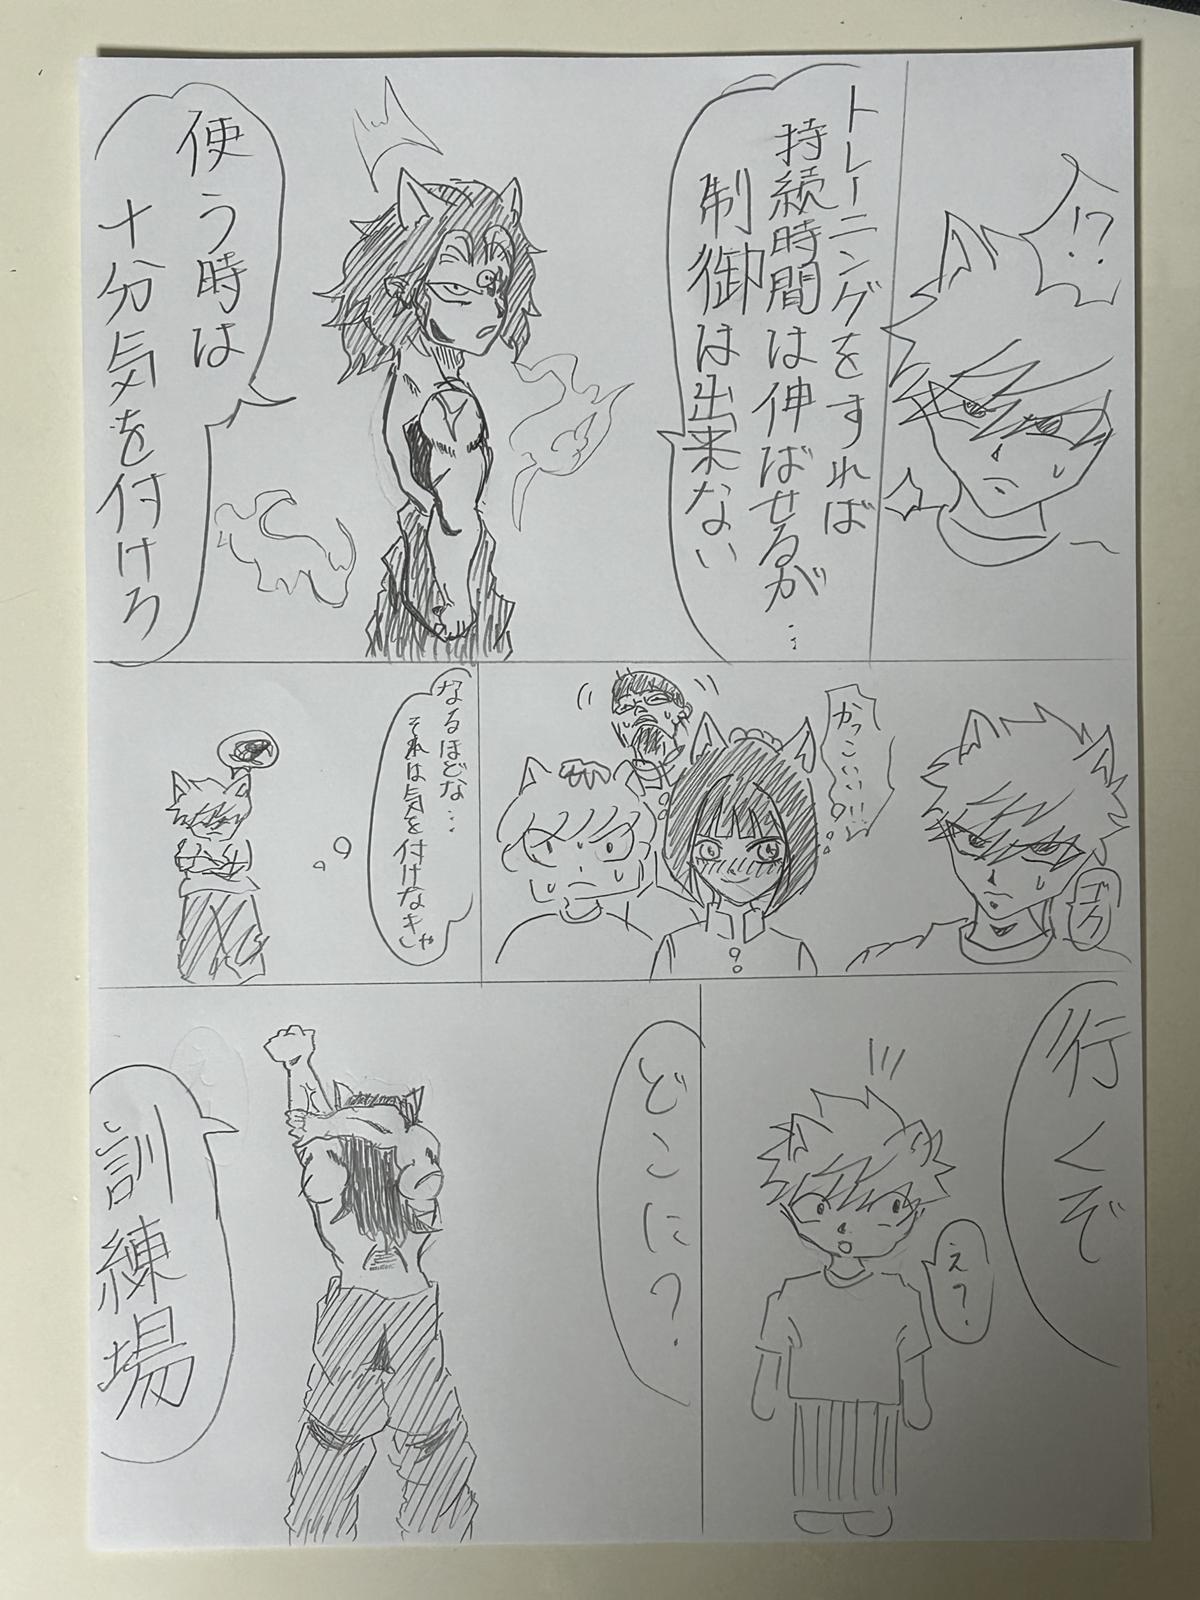 !?
トレーニングをすれば
持続時間は伸ばせるが…
制御は出来ない
使う時は
十分気を付けろ
ゴク
かっこいい!!
なるほどな…
それは気を付けなきゃ
行くぞ
え?
どこに?
訓練場